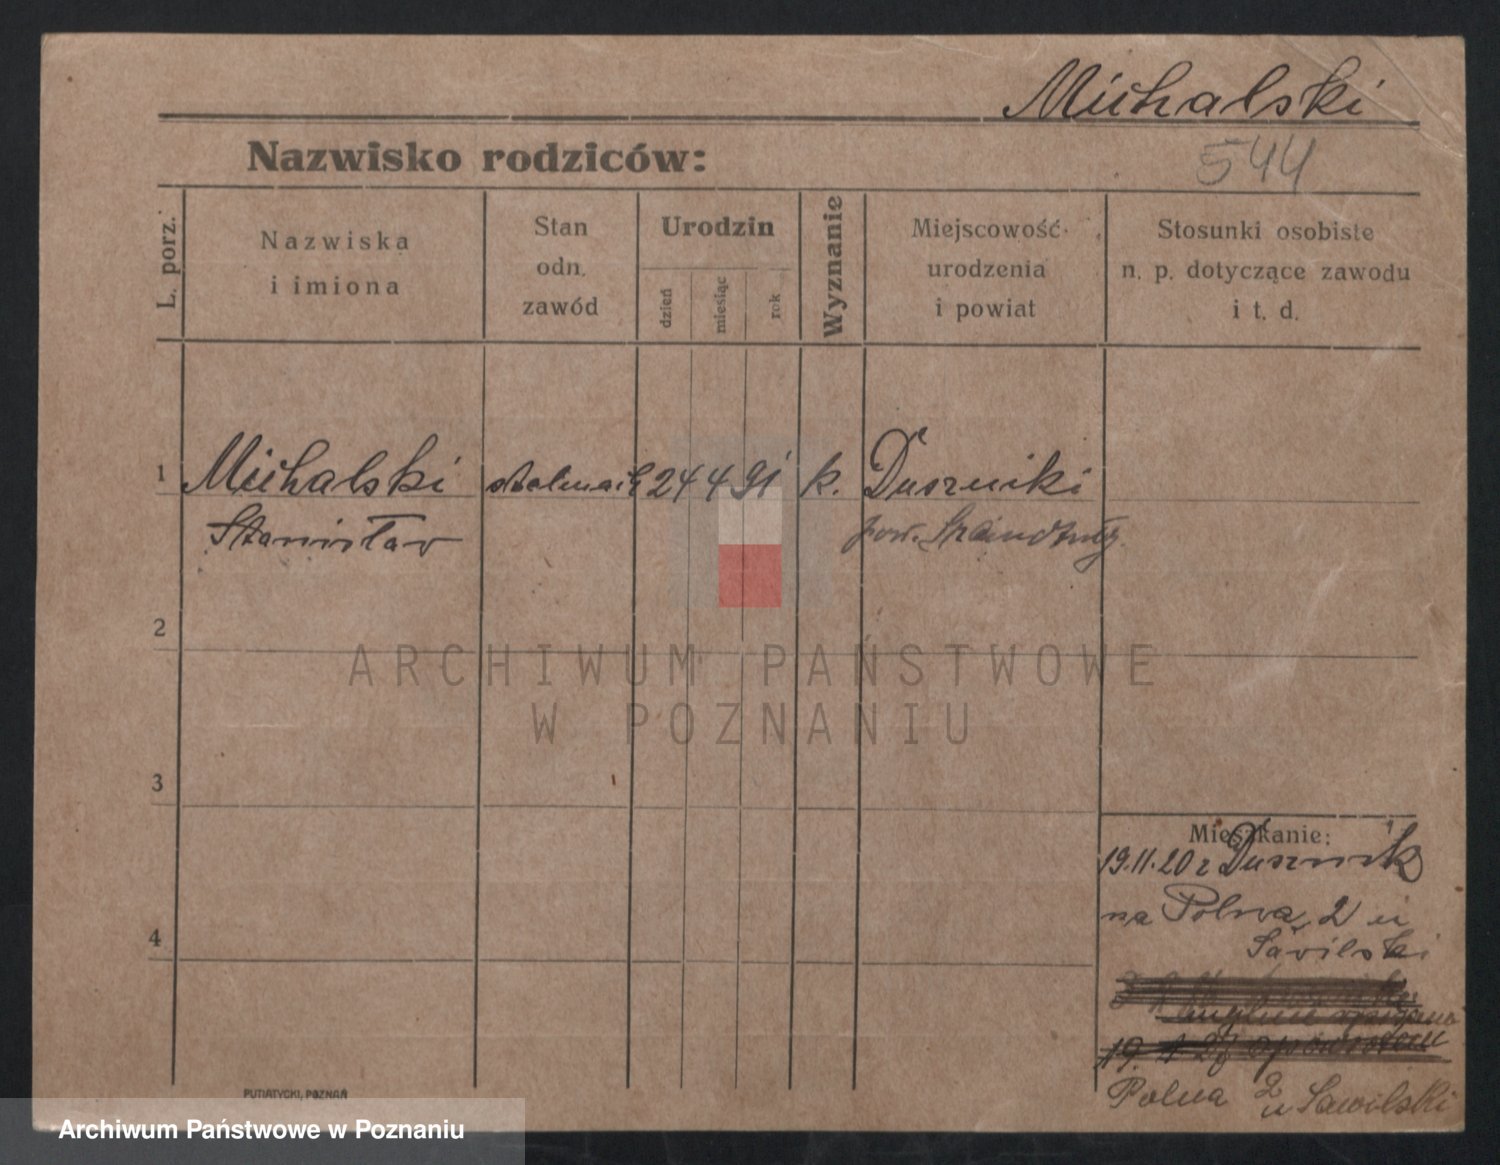 Michalski
Nazwisko rodziców:
544
L. porz.
Nazwiska
i imiona
Stan
odn.
zawód
Urodzin
dzień
miesiąc
rok
Wyznanie
Miejscowość
urodzenia
i powiat
Stosunki osobiste
n. p. dotyczące zawodu
i t. d.
1 Michalski stelmach 24 4 91 k. Duszniki
Stanisław pow.
2
ARCHIWUM PAŃSTWOWE
W POZNANIU
3
Mieszkanie:
19.11.20 z Dusznik
na Polna 2 u
Sawilski
4
19.
Polna 2
u Sawilski
PUTIATYCKI, POZNAŃ
Archiwum Państwowe w Poznaniu